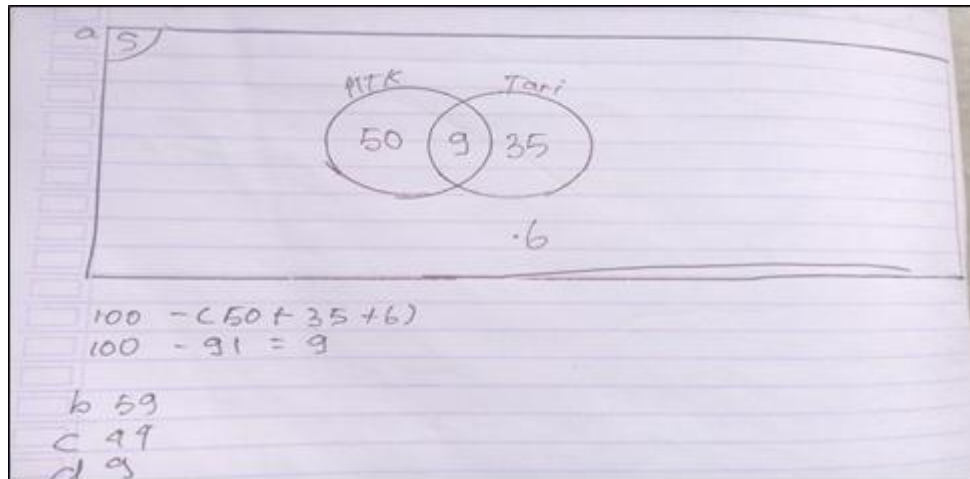 a S
MTK Tari
50 9 35
.6
100 - (50 + 35 + 6)
100 - 91 = 9
b 59
c 44
d 9